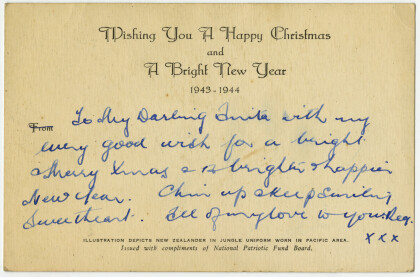 Wishing You A Happy Christmas
and
A Bright New Year
1943-1944
From
To My Darling Anita with my
every good wish for a bright
Merry Xmas & a brighter & happier
New Year. Chin up & keep smiling
Sweetheart. All of my love to you. Reg.
x x x
ILLUSTRATION DEPICTS NEW ZEALANDER IN JUNGLE UNIFORM WORN IN PACIFIC AREA.
Issued with compliments of National Patriotic Fund Board.